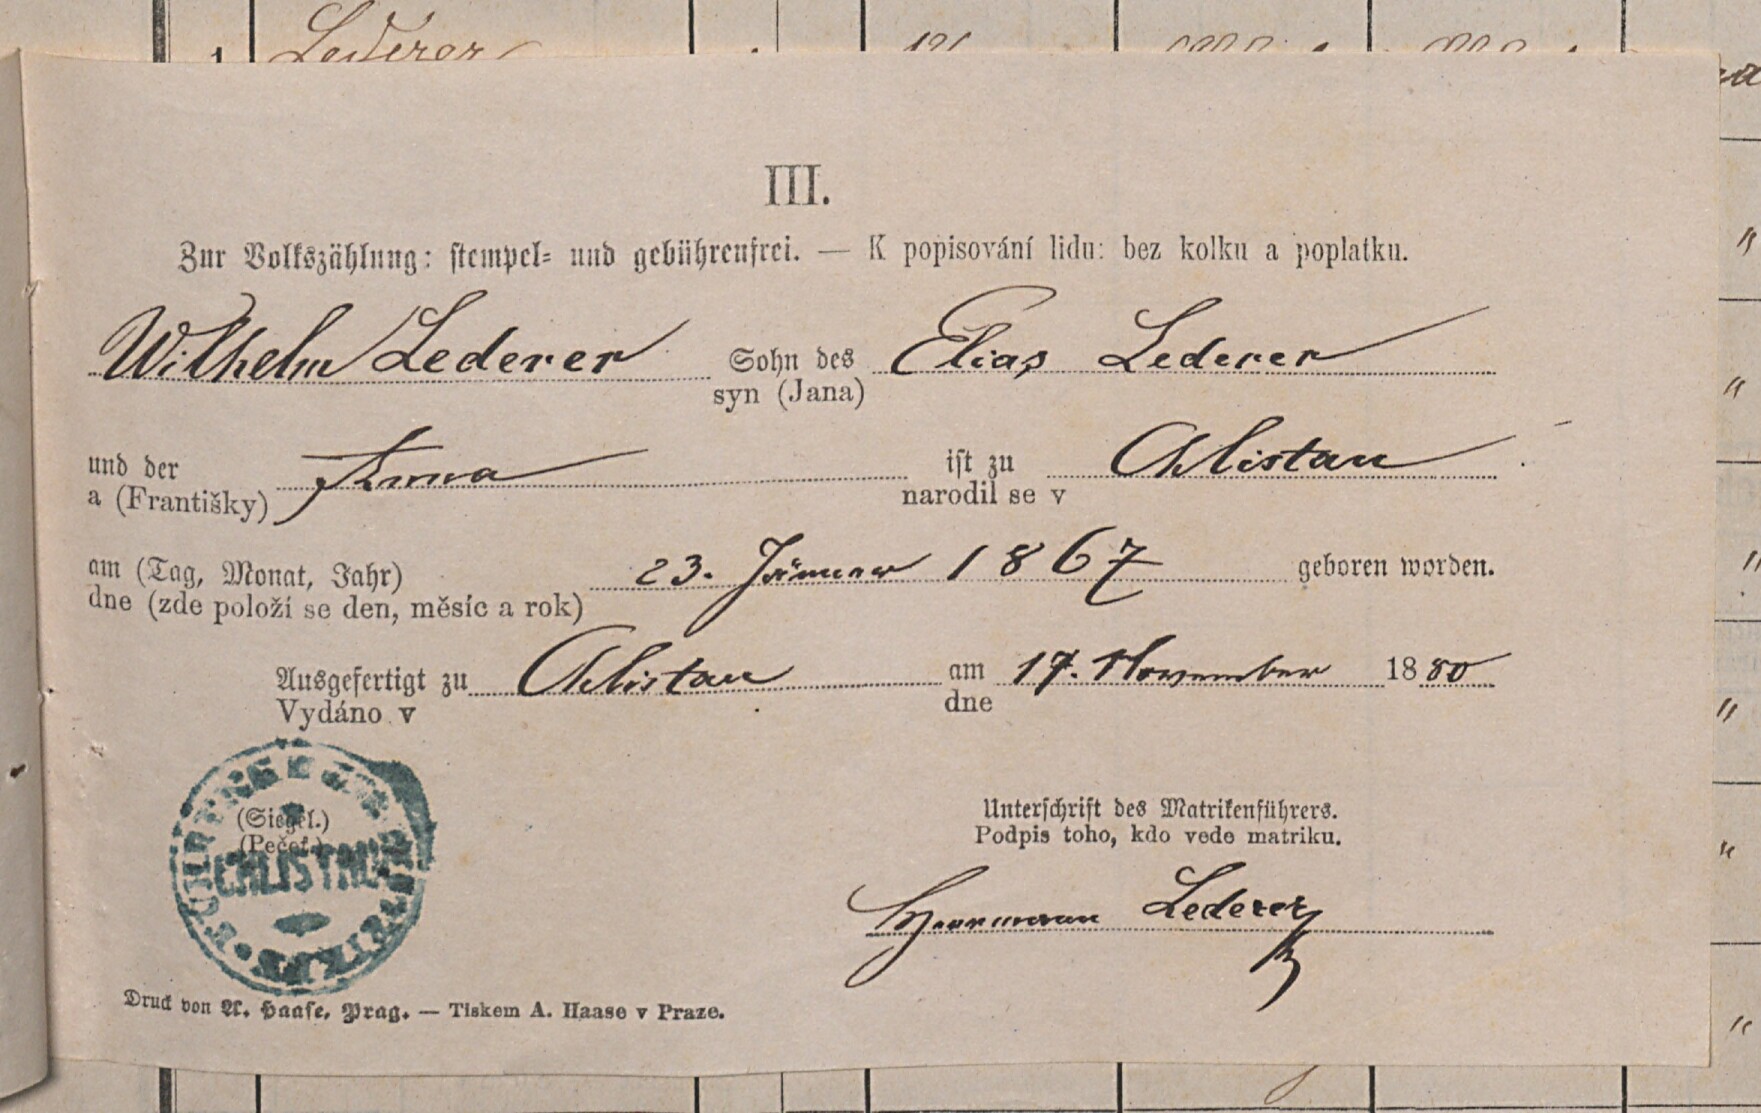 Lederer
III.
Zur Volkszählung: stempel- und gebührenfrei. — K popisování lidu: bez kolku a poplatku.
Wilhelm Lederer Sohn des Elias Lederer
syn (Jana)
und der Anna ist zu Chlistau
a (Františky) narodil se v
am (Tag, Monat, Jahr) 23. Jänner 1867 geboren worden.
dne (zde položí se den, měsíc a rok)
Ausgefertigt zu Chlistau am 17. November 1880
Vydáno v dne
(Siegel.)
(Pečeť.)
CHLISTAU
Unterschrift des Matrikenführers.
Podpis toho, kdo vede matriku.
Herrmann Lederer
Druck von A. Haase, Prag. — Tiskem A. Haase v Praze.